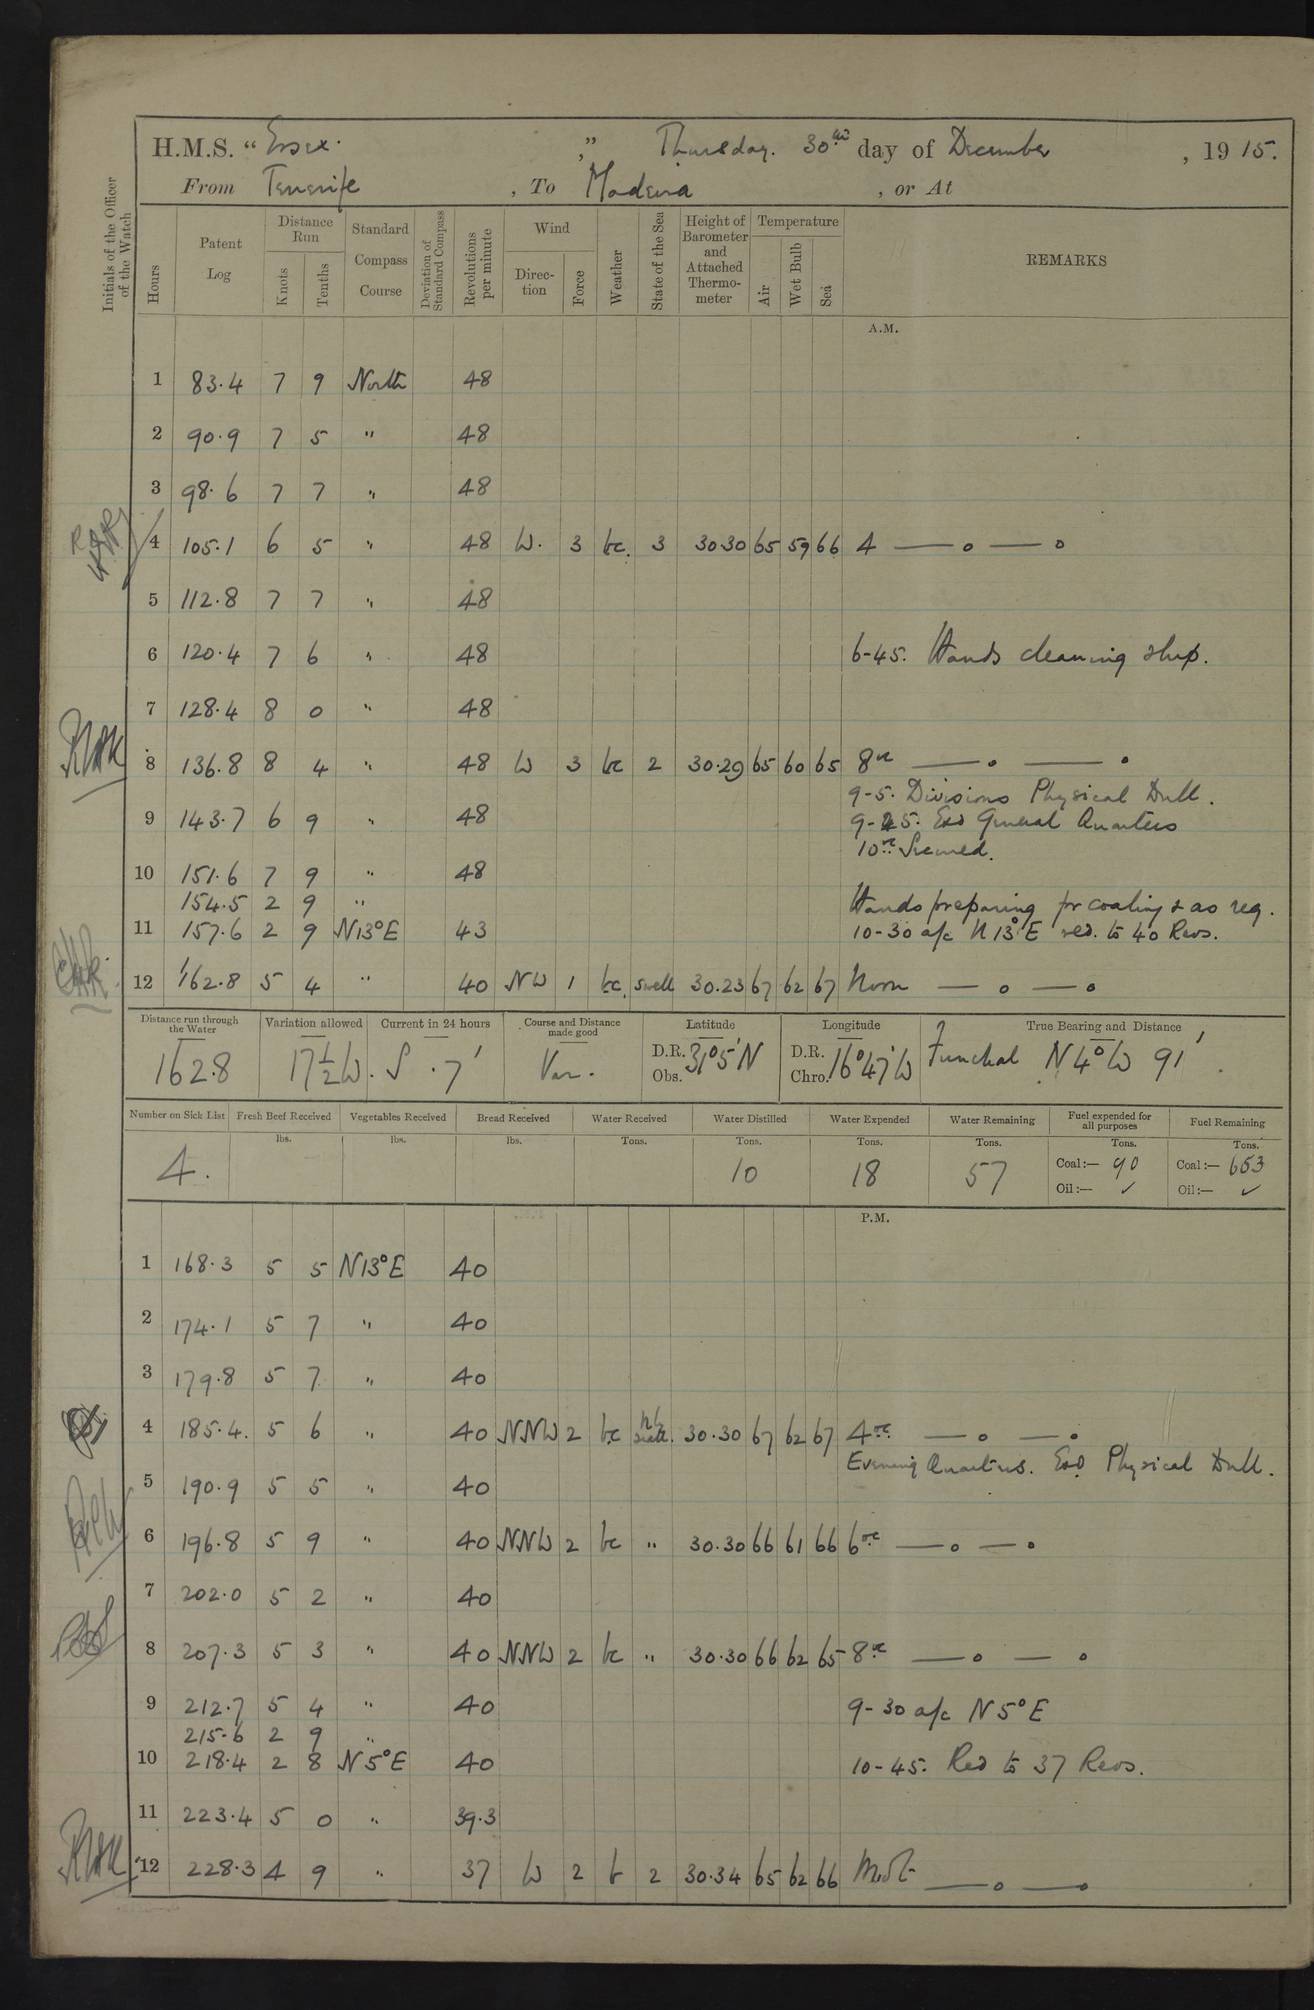 H.M.S. " Essex. ," Thursday. 30th day of December , 19 15.
From Tenerife , To Madeira , or At
Initials of the Officer of the Watch
Hours
Patent Log
Distance Run
Knots
Tenths
Standard Compass Course
Deviation of Standard Compass
Revolutions per minute
Wind
Direc-tion
Force
Weather
State of the Sea
Height of Barometer and Attached Thermo-meter
Temperature
Air
Wet Bulb
Sea
REMARKS
A.M.
1 83.4 7 9 North 48
2 90.9 7 5 " 48
3 98.6 7 7 " 48
4 105.1 6 5 " 48 W. 3 bc. 3 30.30 65 59 66 4 — o — o
5 112.8 7 7 " 48
6 120.4 7 6 " 48 6-45. Hands cleaning ship.
7 128.4 8 0 " 48
8 136.8 8 4 " 48 W 3 bc 2 30.29 65 60 65 8 oc — o — o
9-5. Divisions Physical Drill.
9 143.7 6 9 " 48 9-25. Exd General Quarters
10 oc Secured.
10 151.6 7 9 " 48
154.5 2 9 " Hands preparing for coaling & as req.
11 157.6 2 9 N13°E 43 10-30 a/c N 13°E red. to 40 Revs.
12 162.8 5 4 " 40 NW 1 bc. swell 30.23 67 62 67 Noon — o — o
Distance run through the Water
Variation allowed
Current in 24 hours
Course and Distance made good
Latitude
Longitude
True Bearing and Distance
162.8 17½W. S .7' Var. D.R. 31°5'N D.R. 16°47'W Funchal N4°W 91'.
Obs. Chro.
Number on Sick List
Fresh Beef Received
Vegetables Received
Bread Received
Water Received
Water Distilled
Water Expended
Water Remaining
Fuel expended for all purposes
Fuel Remaining
lbs. lbs. lbs. Tons. Tons. Tons. Tons. Tons. Tons.
4. 10 18 57 Coal:— 90 Coal:— 653
Oil:— ✓ Oil:— ✓
P.M.
1 168.3 5 5 N13°E 40
2 174.1 5 7 " 40
3 179.8 5 7 " 40
4 185.4. 5 6 " 40 NNW 2 bc 30.30 67 62 67 4 oc — o — o
Evening Quarters. Exd Physical Drill.
5 190.9 5 5 " 40
6 196.8 5 9 " 40 NNW 2 bc " 30.30 66 61 66 6 oc — o — o
7 202.0 5 2 " 40
8 207.3 5 3 " 40 NNW 2 bc " 30.30 66 62 65 8 oc — o — o
9 212.7 5 4 " 40 9-30 a/c N 5°E
215.6 2 9 "
10 218.4 2 8 N 5°E 40 10-45. Red to 37 Revs.
11 223.4 5 0 " 39.3
12 228.3 4 9 " 37 W 2 b 2 30.34 65 62 66 Midt — o — o